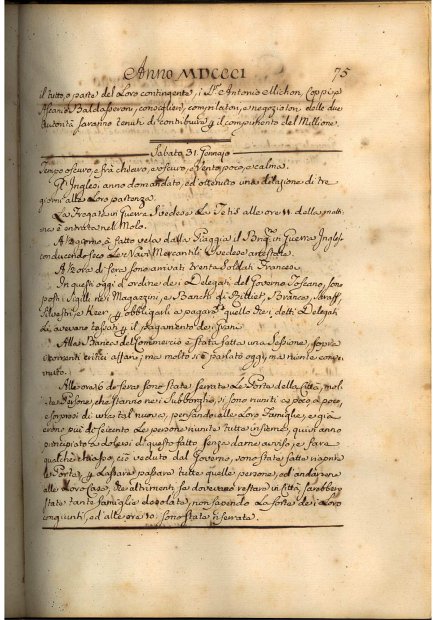 Anno MDCCCI 75
il tutto, o parte del Loro contingente, i Sri Antonio Michon, Coppi, e
Ascanio Baldasseroni, consiglieri, compilatori, e negoziatori delle due
saranno tenuti di contribuire il compimento del Millione.
Sabato 31. Gennaio
Tempo oscuro, e frà chiaro, e oscuro, e Vento poco, e calma.
Gl' Inglesi anno domandato, ed ottenuto una dilazione di tre
giorni alla Loro partenza.
La Fregata in Guerra Svedese La Tetis alle ore 11 della mat-
ne è entrata nel Molo.
A mezzogiorno à fatto vela dalla Piaggia il Brig. in Guerra Inglese
conducendo seco Le Navi Mercantili Svedese arrestate.
A ore di sera sono arrivati trenta Soldati Francesi.
In questi oggi d'ordine dei Delegati del Governo Toscano, sono
posti i Sigilli nei Magazzini, e Banchi di
Silvestri, e Keer, obbligarli a pagare quello che i detti Delegati
di avevano tassati il pagamento dei
Alla Banca del Commercio è stata fatta una Sessione, sopra
correnti critici affari; ma molto si è parlato oggi, ma niente conve-
nuto.
Alle ore 6 di sera sono state serrate Le Porte della Città, mol-
te Persone, che stanno nei Subborghi, si sono riuniti a poco a poco,
e sorpresi di una tal nuova, pensando alle Loro Famiglie, e già
erono più di seicento Le persone riunite tutte insieme, quivi anno
principiato a dolersi di questo fatto senza darne avviso, e fare
qualche chiasso, ciò veduto dal Governo, sono state fatte riaprire
dette Porte, Lasciare passare tutte quelle persone, ed andarsene
alle Loro Case, che altrimenti se dovevano restare in Città, sarebbero
state tante famiglie desolate, non sapendo La sorte dei Loro
congiunti, ed alle ore 10: sono state riserrate.